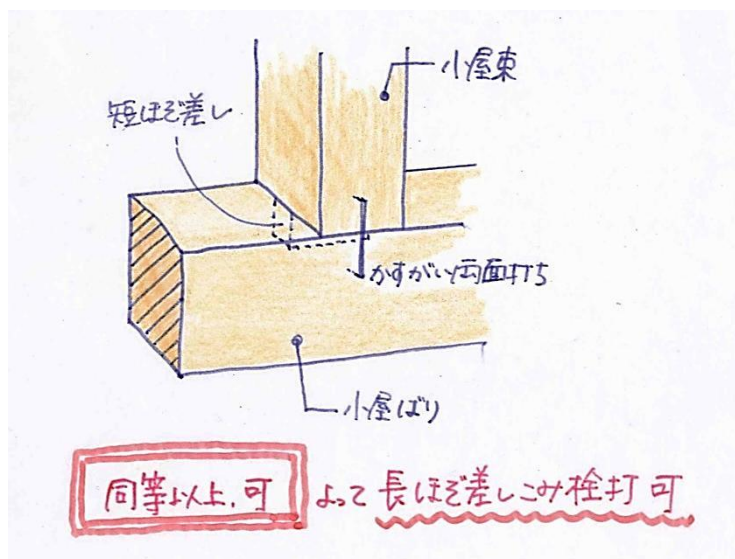 小屋束
短ほぞ差し
かすがい両面打ち
小屋ばり
同等以上、可 よって 長ほぞ差しこみ栓打 可